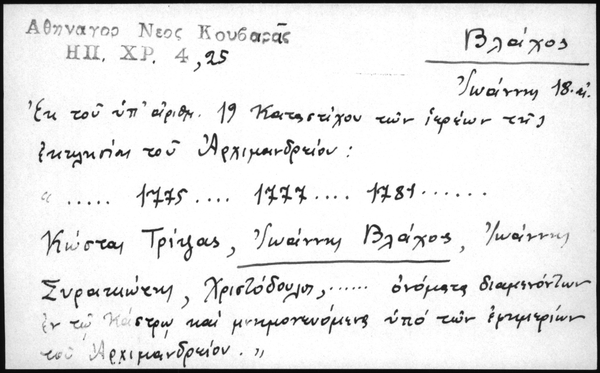 Αθηναγορ Νεος Κουβαρᾶς
ΗΠ. ΧΡ. 4, 25
Βλάχος
Ἰωάννης 18. αἰ.
Ἐκ τοῦ ὑπ' ἀριθμ. 19 Καταστίχου τῶν ἱερέων τῆς
ἐκκλησίας τοῦ Ἀρχιμανδρείου:
" ..... 1775 .... 1777 .... 1781 ......
Κώστας Τρίτζας, Ἰωάννης Βλάχος, Ἰωάννης
Συρακιώτης, Χριστόδουλος, ...... ὀνόματα διαμενόντων
ἐν τῷ Κάστρῳ καὶ μνημονευόμενα ὑπό τῶν ἐφημερίων
τοῦ Ἀρχιμανδρείου. "